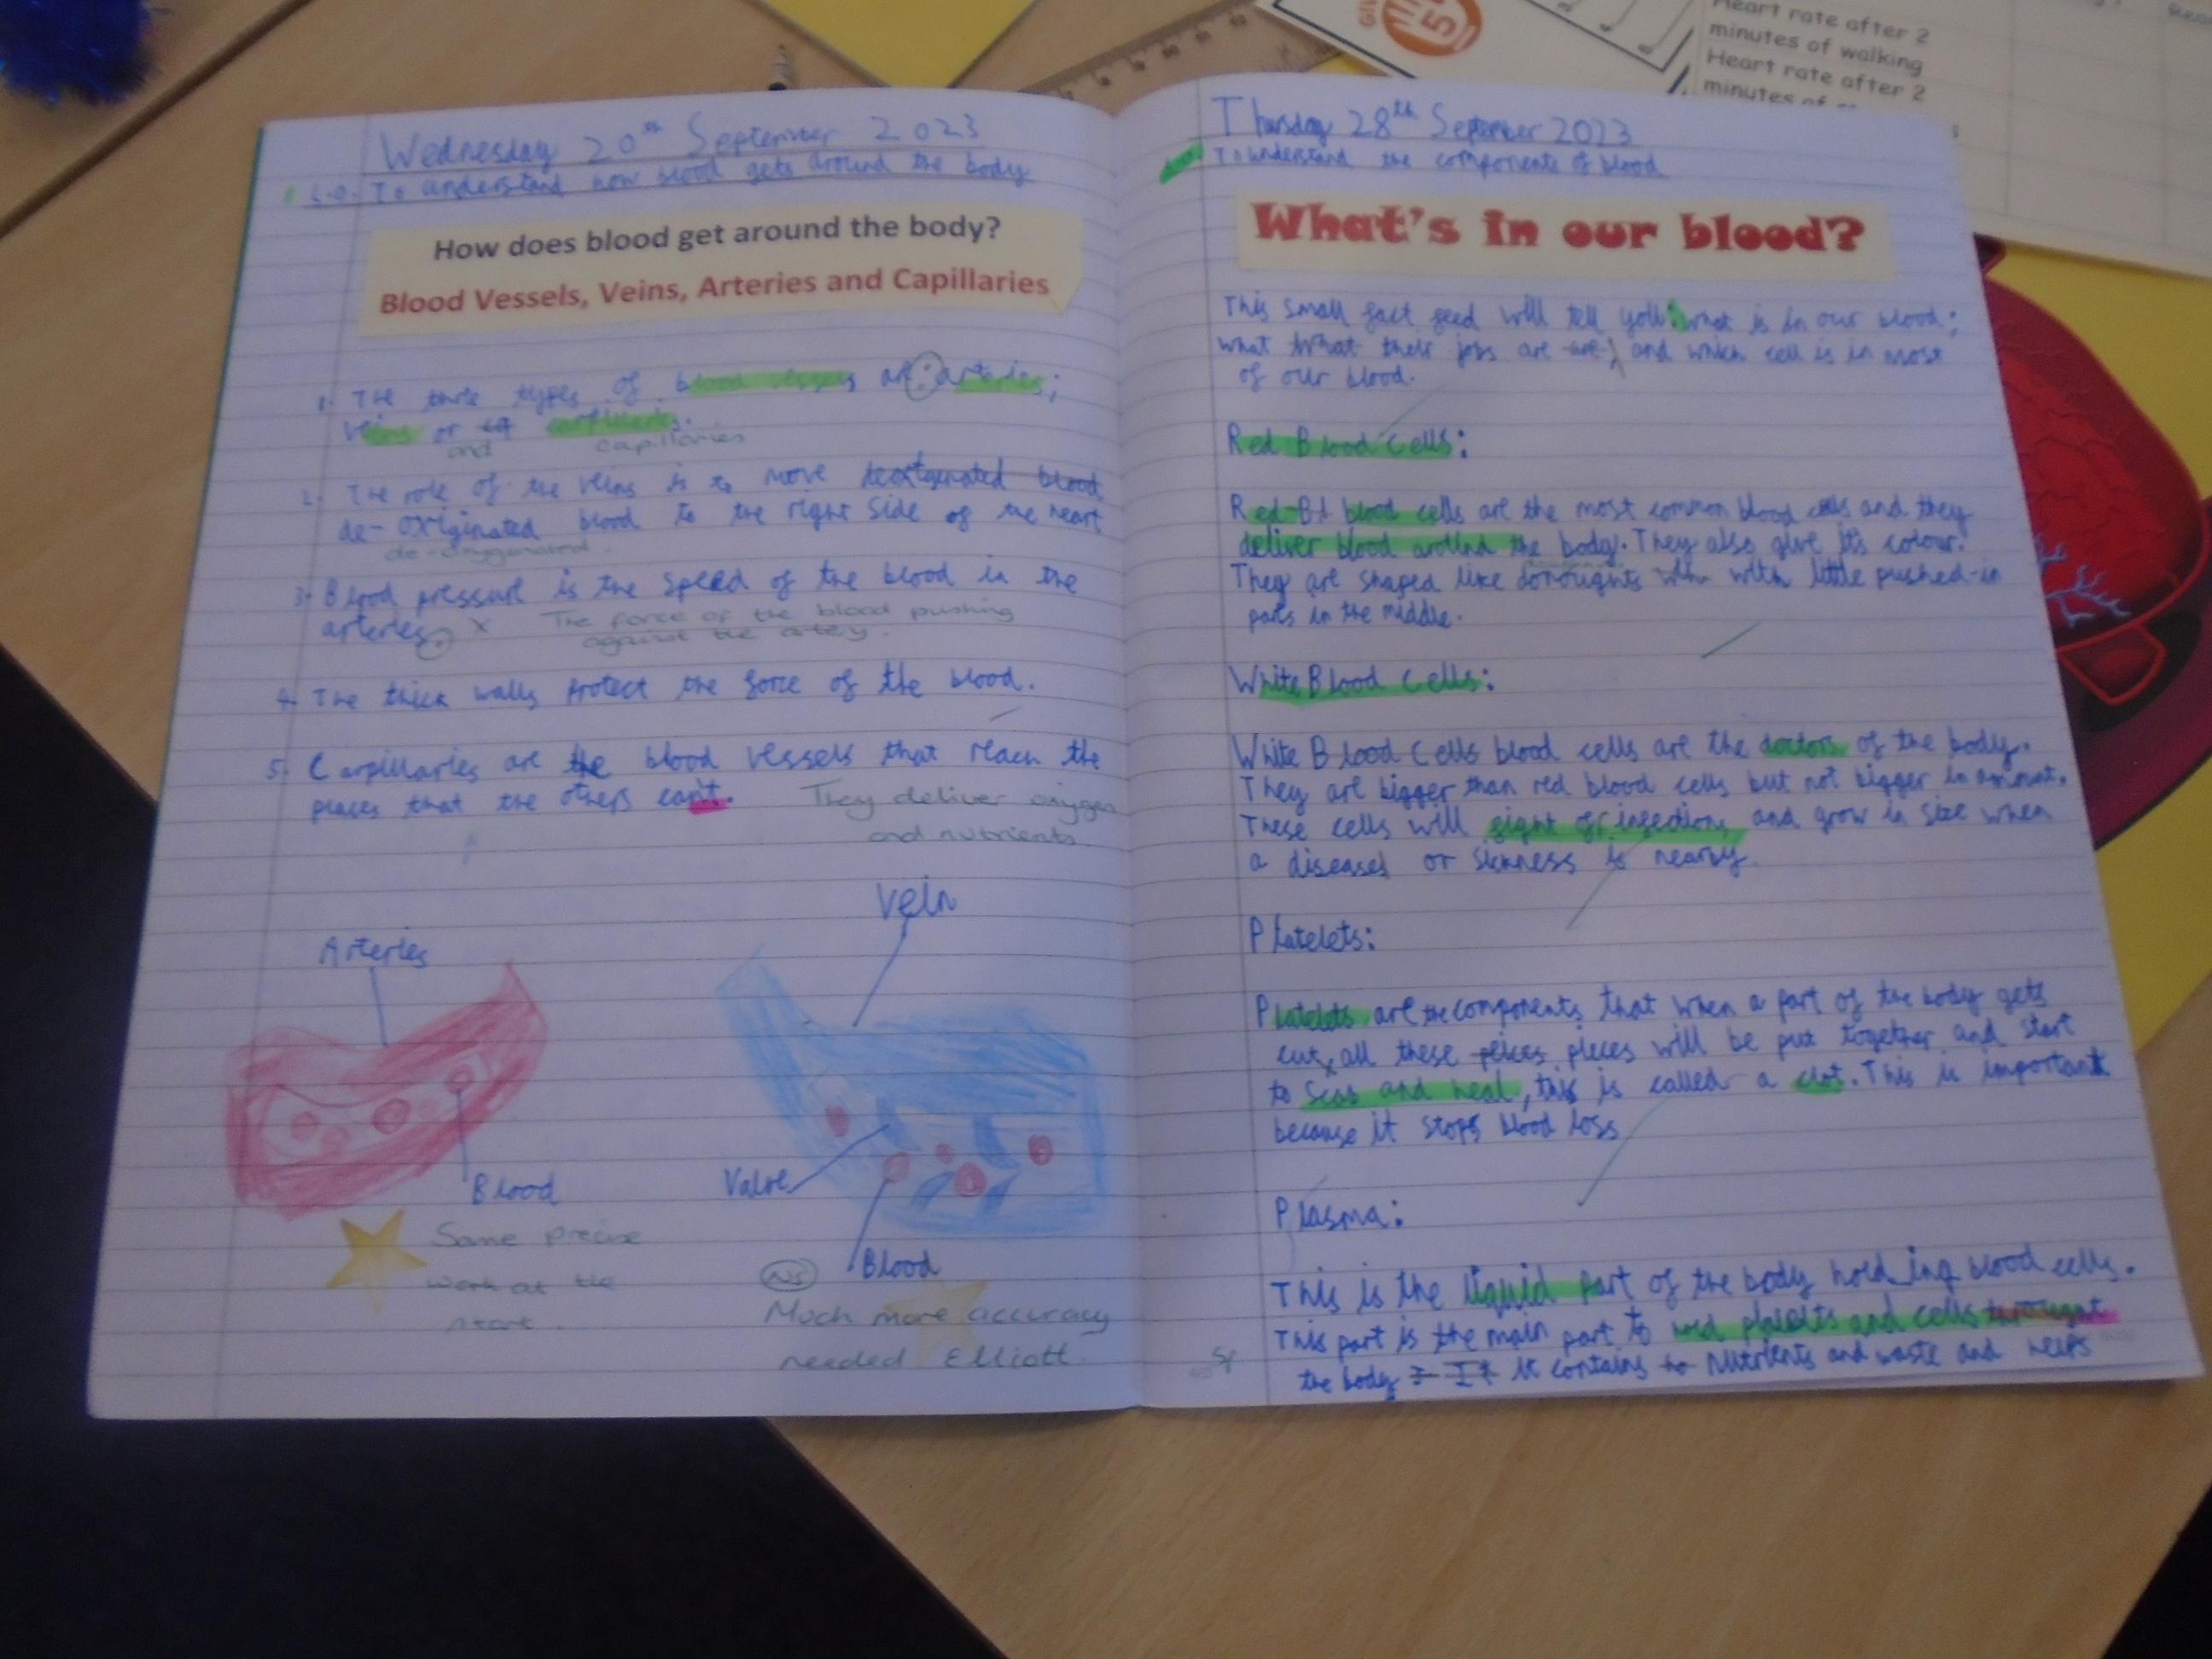 Heart rate after 2
minutes of walking
Heart rate after 2
minutes of
Wednesday 20th September 2023
L.O. To understand how blood gets around the body
How does blood get around the body?
Blood Vessels, Veins, Arteries and Capillaries
1. The three types of blood vessels are: arteries;
veins or carpillaries.
and capillaries
2. The role of the veins is to move deoxiganated blood
de-oxiginated blood to the right side of the heart
de-oxygenated.
3. Blood pressure is the speed of the blood in the
arteries. x The force of the blood pushing
against the artery.
4. The thick walls protect the force of the blood.
5. Carpillaries are the blood vessels that reach the
places that the others can't. They deliver oxygen
and nutrients.
Vein
Arteries
Valve
Blood
Blood
Some precise
work at the
start.
NS
Much more accuracy
needed Elliott.
Thursday 28th September 2023
To understand the components of blood
What's in our blood?
This small fact feed will tell you: what is in our blood;
what what their jobs are are, and which cell is in most
of our blood.
Red Blood Cells:
Red Bl blood cells are the most common blood cells and they
deliver blood around the body. They also give its colour.
They are shaped like with little pushed-in
parts in the middle.
White Blood Cells:
White Blood Cells blood cells are the doctors of the body.
They are bigger than red blood cells but not bigger in amount.
These cells will fight of infections and grow in size when
a diseases or sickness is nearby.
Platelets:
Platelets are the components that when a part of the body gets
cut, all these peices pieces will be put together and start
to scab and heal, this is called a clot. This is important
because it stops blood loss
Plasma:
This is the liquid part of the body holding blood cells.
This part is the main part to platelets and cells
the body It it contains nutrients and waste and helps